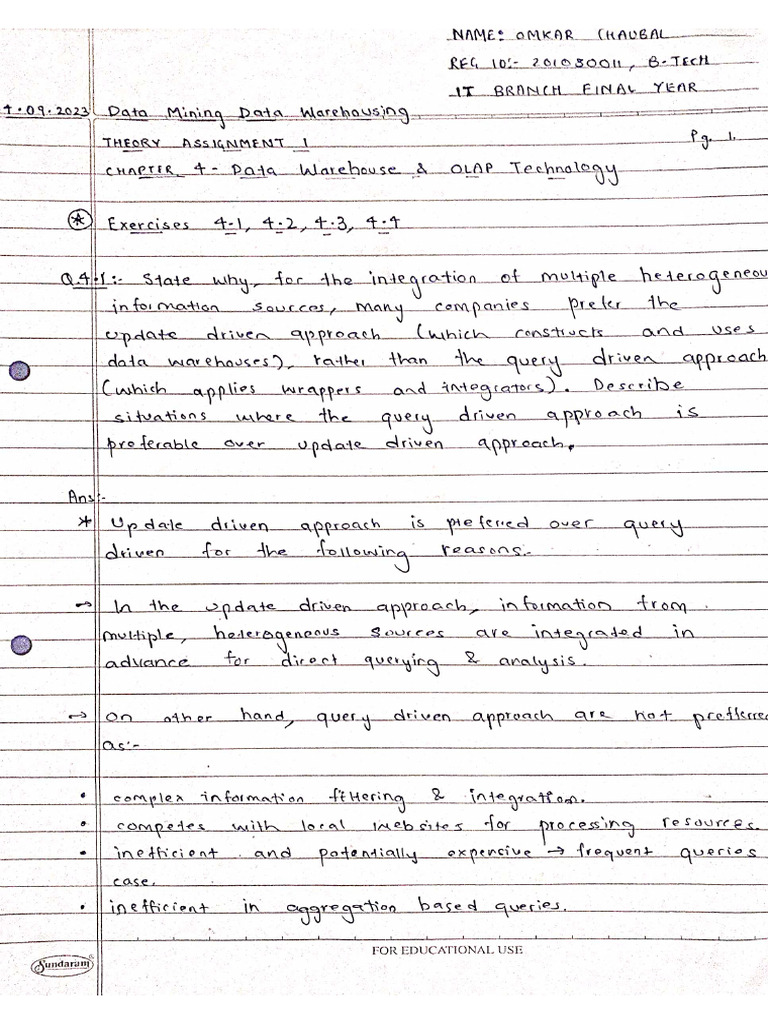 NAME: OMKAR CHAUBAL
REG ID:- 201080011, B-TECH
IT BRANCH FINAL YEAR
09.2023 Data Mining Data Warehousing
THEORY ASSIGNMENT 1
Pg. 1.
CHAPTER 4 - Data Warehouse & OLAP Technology
* Exercises 4.1, 4.2, 4.3, 4.4
Q.4.1:- State why, for the integration of multiple heterogeneous
information sources, many companies prefer the
update driven approach (which constructs and uses
data warehouses), rather than the query driven approach
(which applies wrappers and integrators). Describe
situations where the query driven approach is
preferable over update driven approach.
Ans:-
* Update driven approach is preferred over query
driven for the following reasons.-
→ In the update driven approach, information from
multiple, heterogeneous sources are integrated in
advance for direct querying & analysis.
→ On other hand, query driven approach are not prefferred
as:-
• complex information filtering & integration.
• competes with local websites for processing resources.
• inefficient and potentially expensive → frequent queries
case.
• inefficient in aggregation based queries.
FOR EDUCATIONAL USE
Sundaram